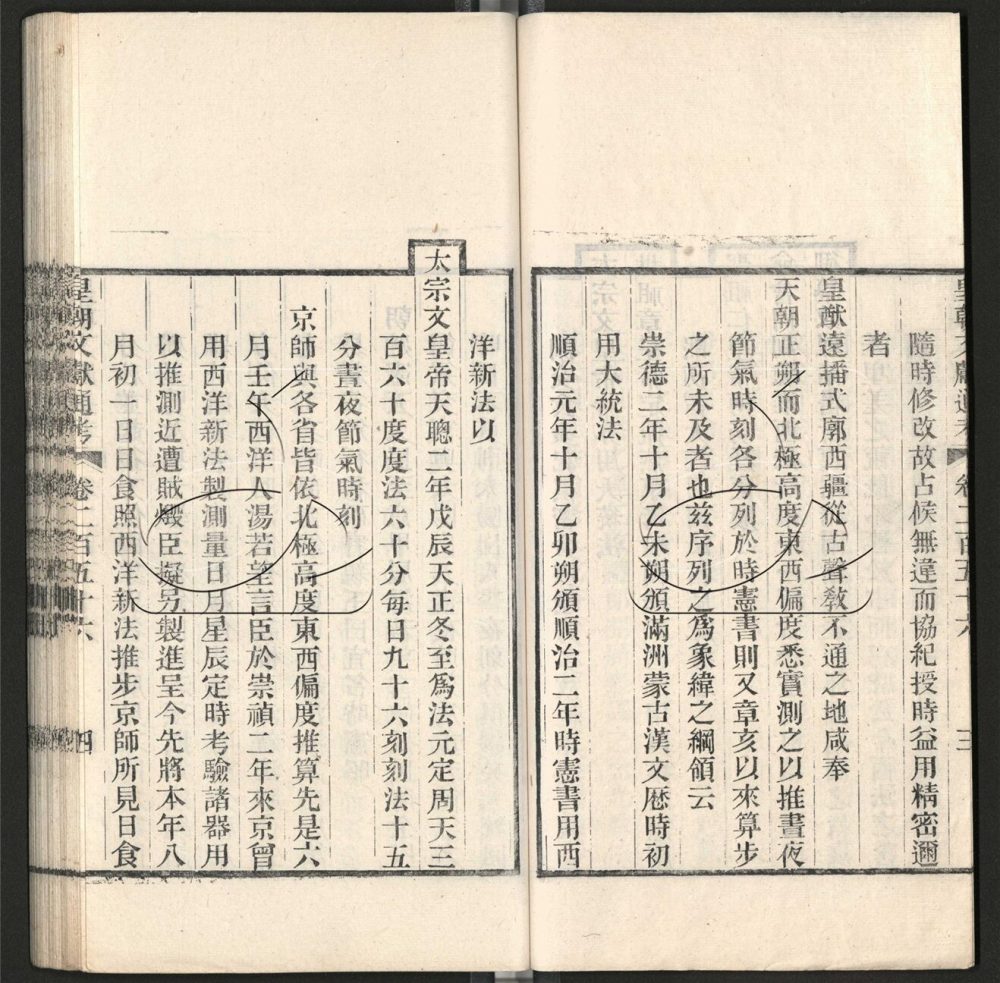 皇朝文獻通考 卷二百五十六 三
隨時修改故占候無違而協紀授時益用精密邇
者
皇猷遠播式廓西疆從古聲敎不通之地咸奉
天朝正朔而北極高度東西偏度悉實測之以推晝夜
節氣時刻各分列於時憲書則又章亥以來算步
之所未及者也兹序列之爲象緯之綱領云
崇德二年十月乙未朔頒滿洲蒙古漢文歷時初
用大統法
順治元年十月乙卯朔頒順治二年時憲書用西
洋新法以
太宗文皇帝天聰二年戊辰天正冬至爲法元定周天三
百六十度度法六十分每日九十六刻刻法十五
分晝夜節氣時刻
京師與各省皆依北極高度東西偏度推算先是六
月壬午西洋人湯若望言臣於崇禎二年來京曾
用西洋新法製測量日月星辰定時考驗諸器用
以推測近遭賊燬臣擬另製進呈今先將本年八
月初一日日食照西洋新法推步京師所見日食
皇朝文獻通考 卷二百五十六 四